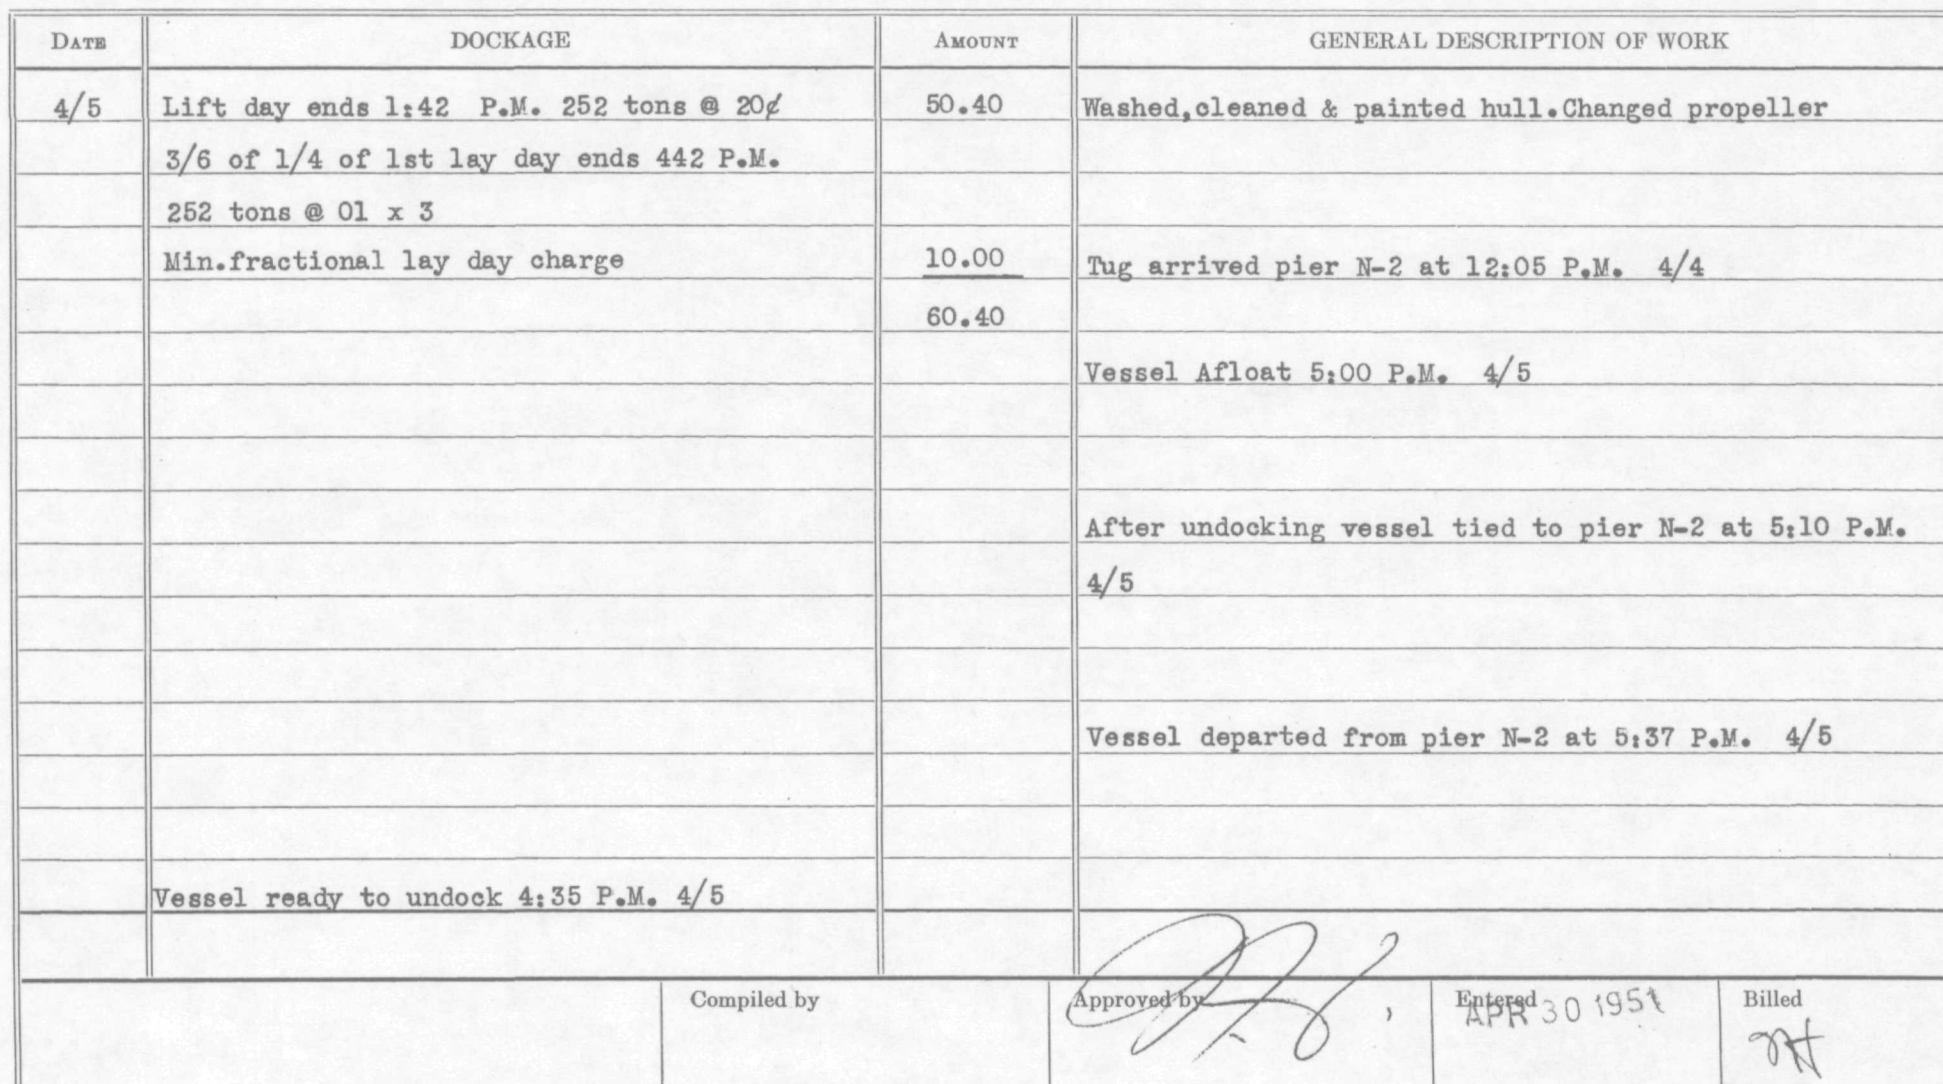 DATE DOCKAGE AMOUNT GENERAL DESCRIPTION OF WORK
4/5 Lift day ends 1:42 P.M. 252 tons @ 20¢ 50.40 Washed,cleaned & painted hull.Changed propeller
3/6 of 1/4 of 1st lay day ends 442 P.M.
252 tons @ 01 x 3
Min.fractional lay day charge 10.00 Tug arrived pier N-2 at 12:05 P.M. 4/4
60.40
Vessel Afloat 5:00 P.M. 4/5
After undocking vessel tied to pier N-2 at 5:10 P.M.
4/5
Vessel departed from pier N-2 at 5:37 P.M. 4/5
Vessel ready to undock 4:35 P.M. 4/5
Compiled by Approved by Entered Billed
APR 30 1951